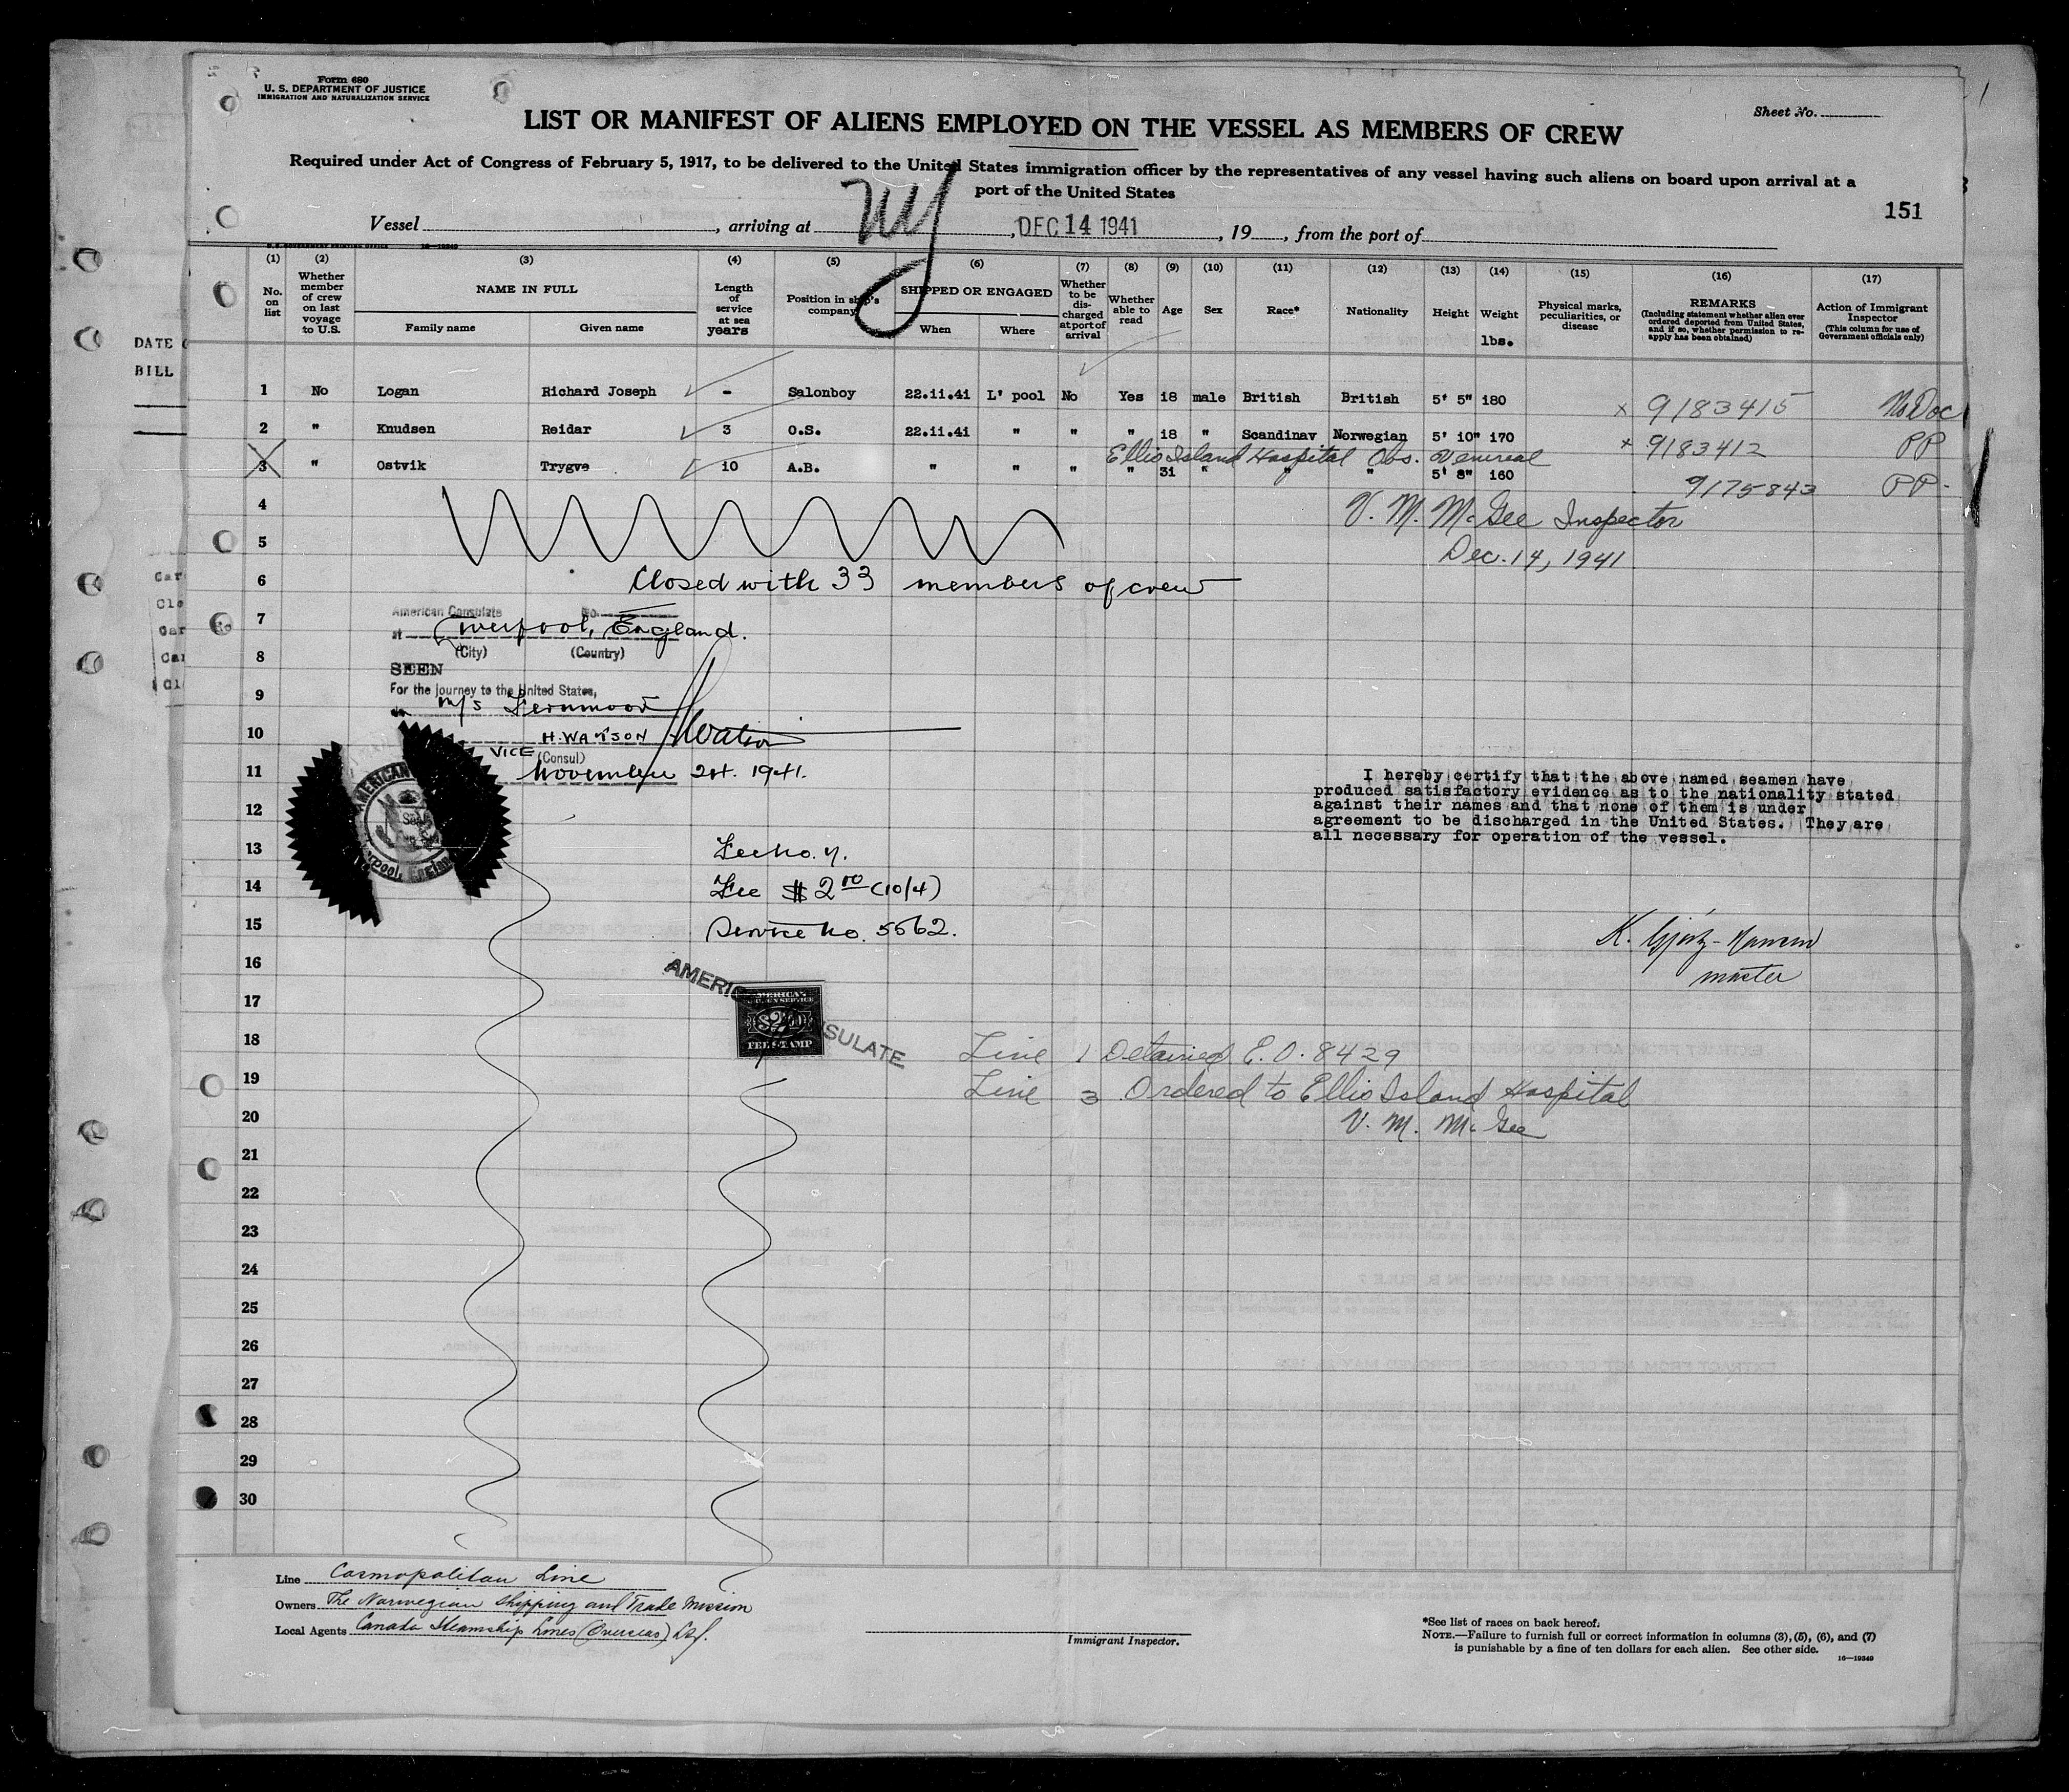 Form 680
U. S. DEPARTMENT OF JUSTICE
IMMIGRATION AND NATURALIZATION SERVICE
Sheet No.
LIST OR MANIFEST OF ALIENS EMPLOYED ON THE VESSEL AS MEMBERS OF CREW
Required under Act of Congress of February 5, 1917, to be delivered to the United States immigration officer by the representatives of any vessel having such aliens on board upon arrival at a
port of the United States
151
Vessel , arriving at NY , DEC 14 1941 , 19 , from the port of
U.S. GOVERNMENT PRINTING OFFICE 16—19349
(1) (2) (3) (4) (5) (6) (7) (8) (9) (10) (11) (12) (13) (14) (15) (16) (17)
No. on list
Whether member of crew on last voyage to U.S.
NAME IN FULL
Family name Given name
Length of service at sea years
Position in ship's company
SHIPPED OR ENGAGED
When Where
Whether to be discharged at port of arrival
Whether able to read
Age
Sex
Race*
Nationality
Height
Weight lbs.
Physical marks, peculiarities, or disease
REMARKS
(Including statement whether alien ever ordered deported from United States, and if so, whether permission to reapply has been obtained)
Action of Immigrant Inspector
(This column for use of Government officials only)
DATE
BILL
1 No Logan Richard Joseph - Salonboy 22.11.41 L' pool No Yes 18 male British British 5' 5" 180 x 9183415 No Doc
2 " Knudsen Reidar 3 O.S. 22.11.41 " " " 18 " Scandinav Norwegian 5' 10" 170 x 9183412 PP
Ellis Island Hospital Obs. Venereal
3 " Ostvik Trygve 10 A.B. " " " " 31 " " " 5' 8" 160 9175843 PP-
4
V. M. McGee Inspector
5
Dec. 14, 1941
6
Closed with 33 members of crew
7
American Consulate No.
at Liverpool, England.
8
(City) (Country)
SEEN
9
For the journey to the United States,
m/s Fernmoor
10
H. WATSON HWatson
VICE (Consul)
11
November 24. 1941.
12
I hereby certify that the above named seamen have
produced satisfactory evidence as to the nationality stated
against their names and that none of them is under
agreement to be discharged in the United States. They are
all necessary for operation of the vessel.
13
14
Fee $ 2 00 (10/4)
15
Service No. 5562.
16
master
17
AMERICAN
SERVICE
FEE STAMP
AMERIC SULATE
18
Line 1 Detained E.O. 8429
19
Line 3 Ordered to Ellis Island Hospital
20
V. M. McGee
21
22
23
24
25
26
27
28
29
30
Line Cosmopolitan Line
Owners The Norwegian Shipping and Trade Mission
Local Agents Canada Steamship Lines (Overseas) Ltd.
Immigrant Inspector.
*See list of races on back hereof.
NOTE.—Failure to furnish full or correct information in columns (3), (5), (6), and (7)
is punishable by a fine of ten dollars for each alien. See other side.
16—19349